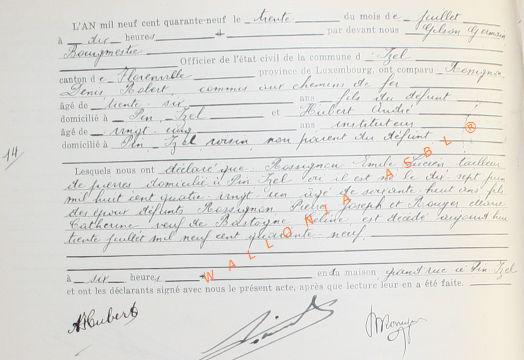 L'AN mil neuf cent quarante-neuf le trente du mois de juillet
à dix heures par devant nous Gilson Germain
Bourgmestre Officier de l'état civil de la commune d Izel
canton de Florenville province de Luxembourg, ont comparu Rossignon
Denis Robert, commis aux chemins de fer
âgé de trente-six ans fils du défunt
domicilié à Pin, Izel et Hubert André
âgé de vingt cinq ans instituteur
domicilié à Pin Izel voisin non parent du défunt
14
Lesquels nous ont déclaré que Rossignon Emile Lucien tailleur
de pierres domicilié à Pin Izel où il est né le dix sept juin
mil huit cent quatre vingt-un âgé de soixante huit ans fils
des époux défunts Rossignon Pierre Joseph et Rouyer Marie
Catherine veuf de Bastogne est décédé aujourd'hui
trente juillet mil neuf cent quarante-neuf.
à six heures en sa maison grand'rue à Pin Izel
et ont les déclarants signé avec nous le présent acte, après que lecture leur en a été faite.
AHubert
WALLONIA ASBL ®